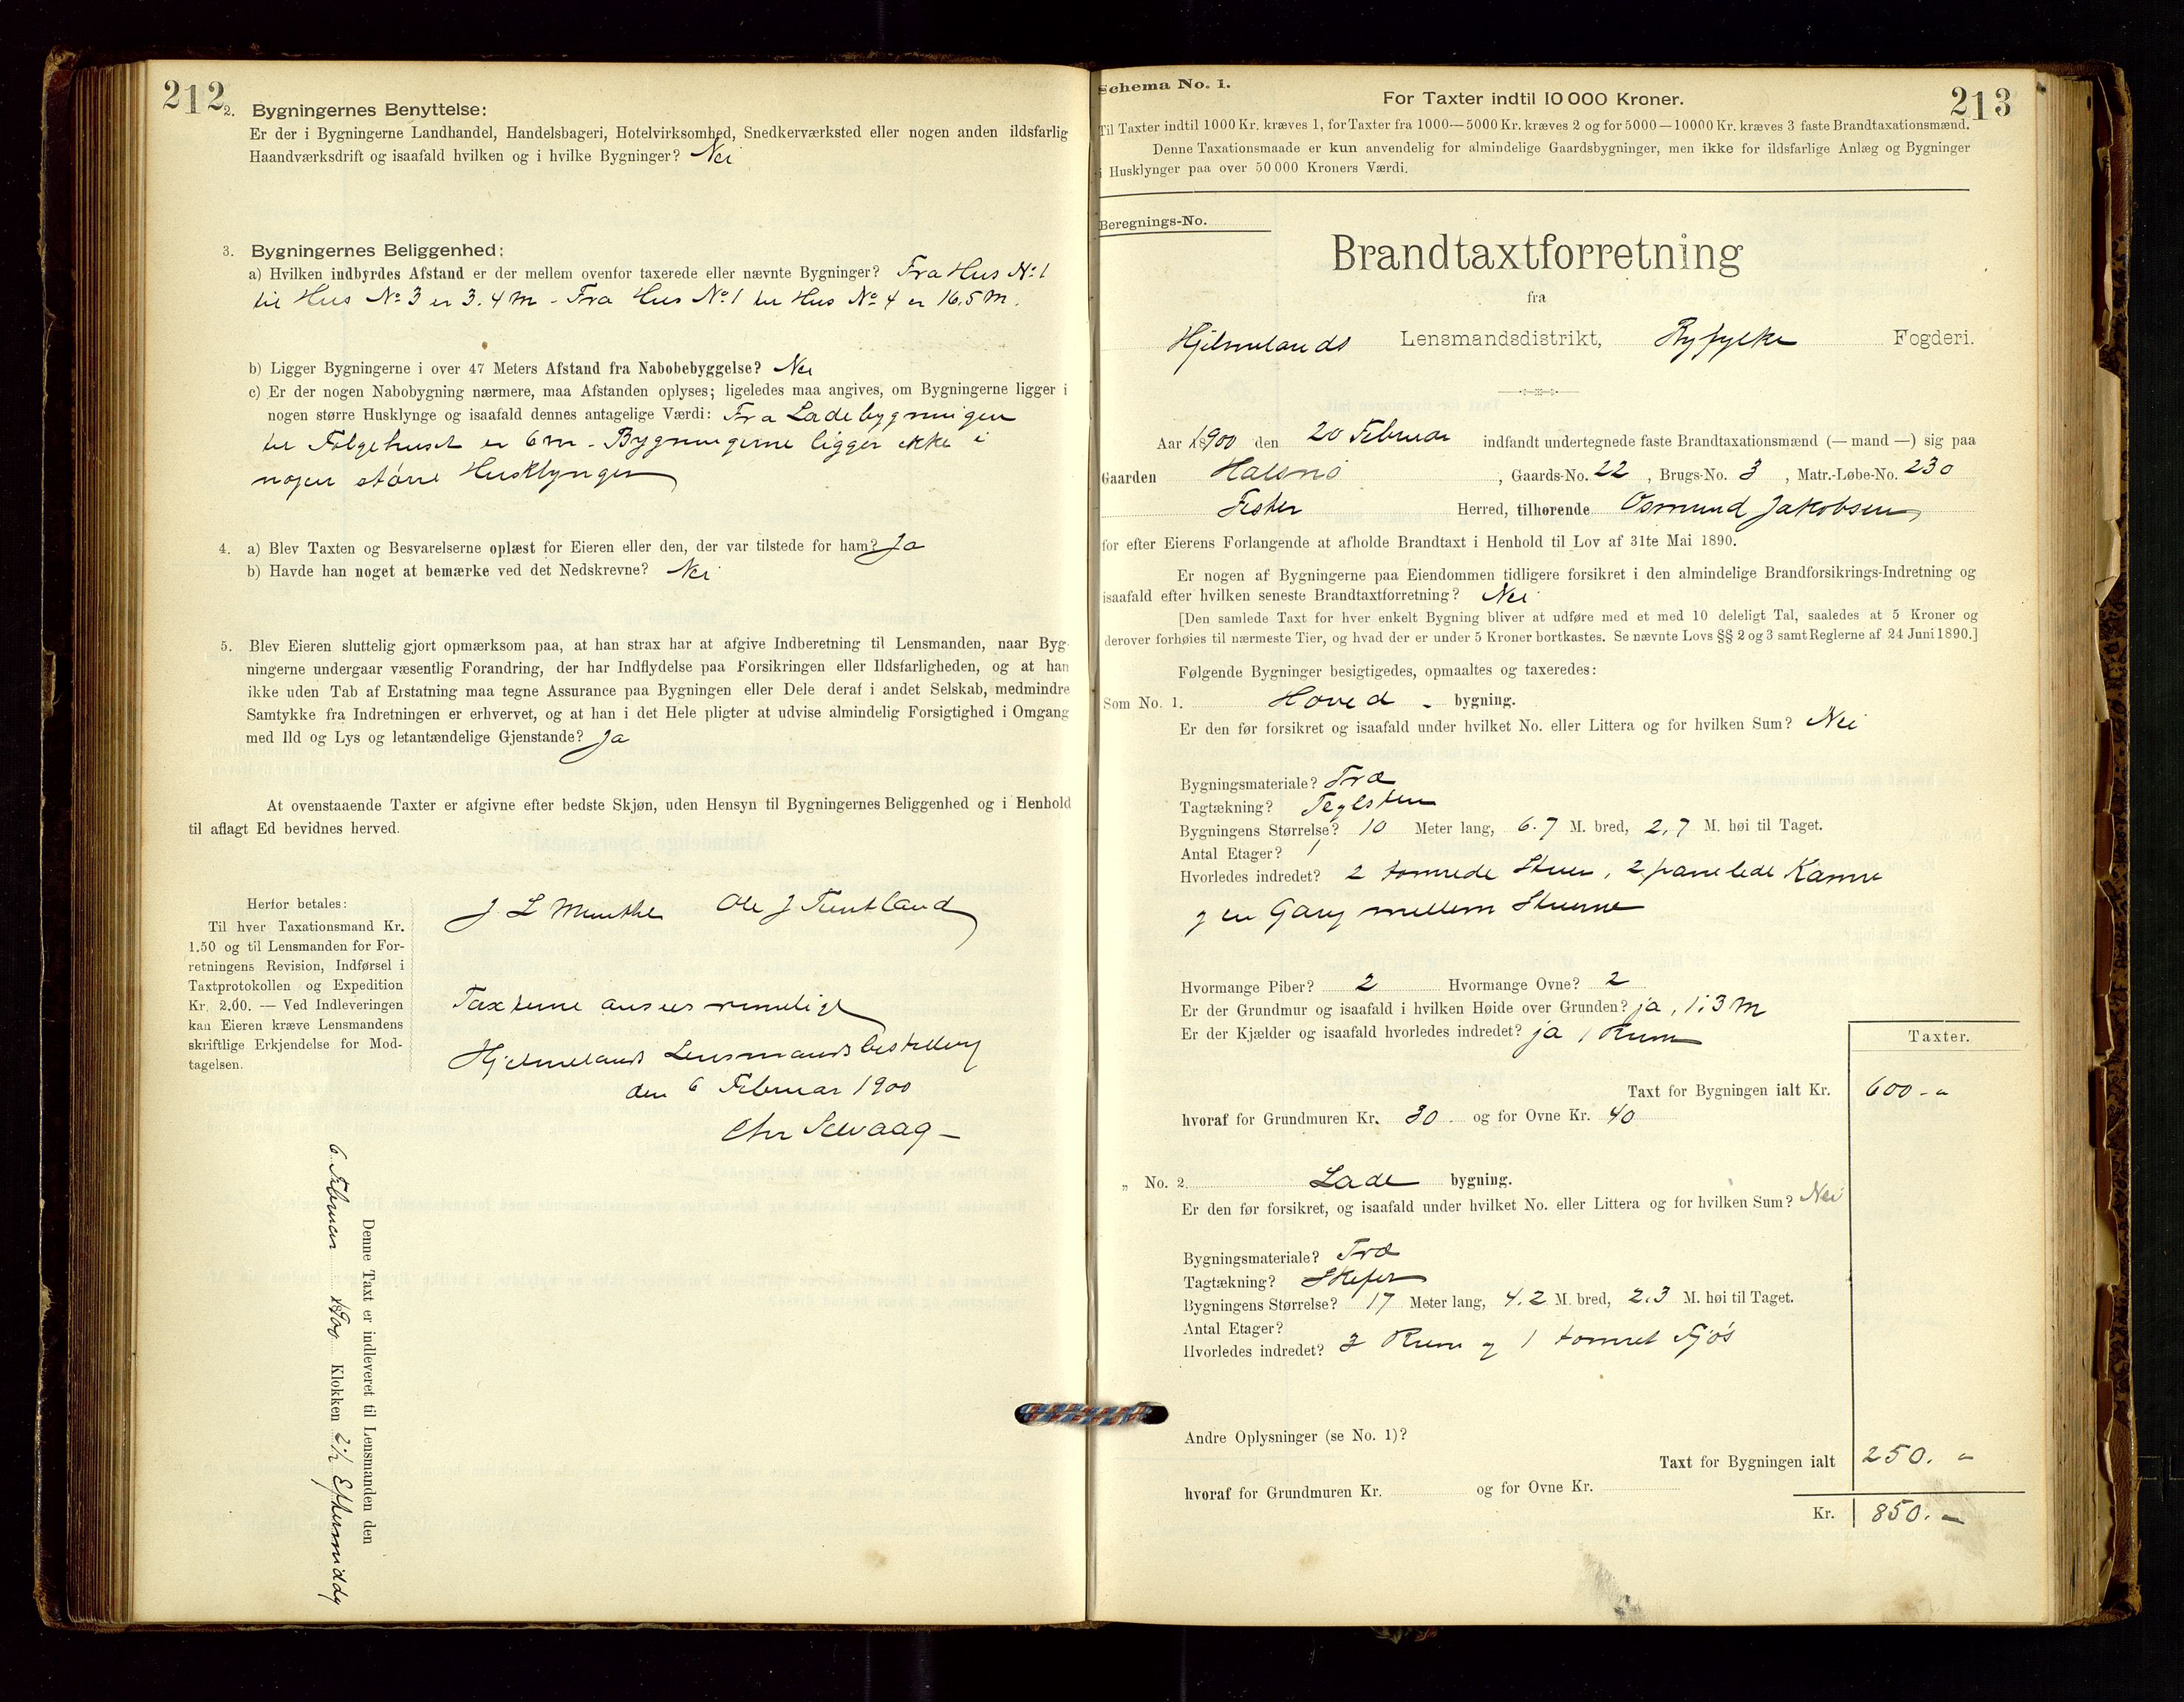 212
2. Bygningernes Benyttelse:
Er der i Bygningerne Landhandel, Handelsbageri, Hotelvirksomhed, Snedkerværksted eller nogen anden ildsfarlig
Haandværksdrift og isaafald hvilken og i hvilke Bygninger? Nei
3. Bygningernes Beliggenhed:
a) Hvilken indbyrdes Afstand er der mellem ovenfor taxerede eller nævnte Bygninger? Fra Hus No 1
til Hus No 3 er 3.4 M - Fra Hus No 1 til Hus No 4 er 16.5 M.
b) Ligger Bygningerne i over 47 Meters Afstand fra Nabobebyggelse? Nei
c) Er der nogen Nabobygning nærmere, maa Afstanden oplyses; ligeledes maa angives, om Bygningerne ligger i
nogen større Husklynge og isaafald dennes antagelige Værdi: Fra Ladebygningen
til Folgehuset er 6 m - Bygningerne ligger ikke i
nogen större Husklynge
4. a) Blev Taxten og Besvarelserne oplæst for Eieren eller den, der var tilstede for ham? Ja
b) Havde han noget at bemærke ved det Nedskrevne? Nei
5. Blev Eieren sluttelig gjort opmærksom paa, at han strax har at afgive Indberetning til Lensmanden, naar Byg-
ningerne undergaar væsentlig Forandring, der har Indflydelse paa Forsikringen eller Ildsfarligheden, og at han
ikke uden Tab af Erstatning maa tegne Assurance paa Bygningen eller Dele deraf i andet Selskab, medmindre
Samtykke fra Indretningen er erhvervet, og at han i det Hele pligter at udvise almindelig Forsigtighed i Omgang
med Ild og Lys og letantændelige Gjenstande? Ja
At ovenstaaende Taxter er afgivne efter bedste Skjøn, uden Hensyn til Bygningernes Beliggenhed og i Henhold
til aflagt Ed bevidnes herved.
J L Munthe Ole J
Herfor betales:
Til hver Taxationsmand Kr.
1.50 og til Lensmanden for For-
retningens Revision, Indførsel i
Taxtprotokollen og Expedition
Kr. 2.00. — Ved Indleveringen
kan Eieren kræve Lensmandens
skriftlige Erkjendelse for Mod-
tagelsen.
Taxterne ansees rimelige
Hjelmelands Lensmandsbestilling
den 6 Februar 1900
Chr Selvaag
Denne Taxt er indleveret til Lensmanden den
6 Februar 1900 Klokken 2½ Eftermiddag
213
Schema No. 1.
For Taxter indtil 10 000 Kroner.
Til Taxter indtil 1000 Kr. kræves 1, for Taxter fra 1000—5000 Kr. kræves 2 og for 5000—10000 Kr. kræves 3 faste Brandtaxationsmænd.
Denne Taxationsmaade er kun anvendelig for almindelige Gaardsbygninger, men ikke for ildsfarlige Anlæg og Bygninger
i Husklynger paa over 50 000 Kroners Værdi.
Beregnings-No.
Brandtaxtforretning
fra
Hjelmelands Lensmandsdistrikt, Ryfylke Fogderi.
Aar 1900 den 20 Februar indfandt undertegnede faste Brandtaxationsmænd (— mand —) sig paa
Gaarden Halsnö, Gaards-No. 22, Brugs-No. 3, Matr.-Løbe-No. 230
Fister Herred, tilhørende Osmund Jakobsen,
for efter Eierens Forlangende at afholde Brandtaxt i Henhold til Lov af 31te Mai 1890.
Er nogen af Bygningerne paa Eiendommen tidligere forsikret i den almindelige Brandforsikrings-Indretning og
isaafald efter hvilken seneste Brandtaxtforretning? Nei
[Den samlede Taxt for hver enkelt Bygning bliver at udføre med et med 10 deleligt Tal, saaledes at 5 Kroner og
derover forhøies til nærmeste Tier, og hvad der er under 5 Kroner bortkastes. Se nævnte Lovs §§ 2 og 3 samt Reglerne af 24 Juni 1890.]
Følgende Bygninger besigtigedes, opmaaltes og taxeredes:
Som No. 1. Hoved - bygning.
Er den før forsikret og isaafald under hvilket No. eller Littera og for hvilken Sum? Nei
Bygningsmateriale? Træ
Tagtækning? Teglsten
Bygningens Størrelse? 10 Meter lang, 6.7 M. bred, 2.7 M. høi til Taget.
Antal Etager? 1
Hvorledes indredet? 2 tomrede Stuer, 2 panelede Kamre
og en Gang mellem Stuerne
Hvormange Piber? 2 Hvormange Ovne? 2
Er der Grundmur og isaafald i hvilken Høide over Grunden? ja, 1.3 M
Er der Kjælder og isaafald hvorledes indredet? ja 1 Rum
Taxter.
Taxt for Bygningen ialt Kr. 600 - "
hvoraf for Grundmuren Kr. 30 og for Ovne Kr. 40
„ No. 2 Lade bygning.
Er den før forsikret, og isaafald under hvilket No. eller Littera og for hvilken Sum? Nei
Bygningsmateriale? Træ
Tagtækning? Skifer
Bygningens Størrelse? 17 Meter lang, 4.2 M. bred, 2.3 M. høi til Taget.
Antal Etager?
Hvorledes indredet? 3 Rum og 1 tomret Fjös
Andre Oplysninger (se No. 1)?
Taxt for Bygningen ialt 250. "
hvoraf for Grundmuren Kr. og for Ovne Kr.
Kr. 850. -